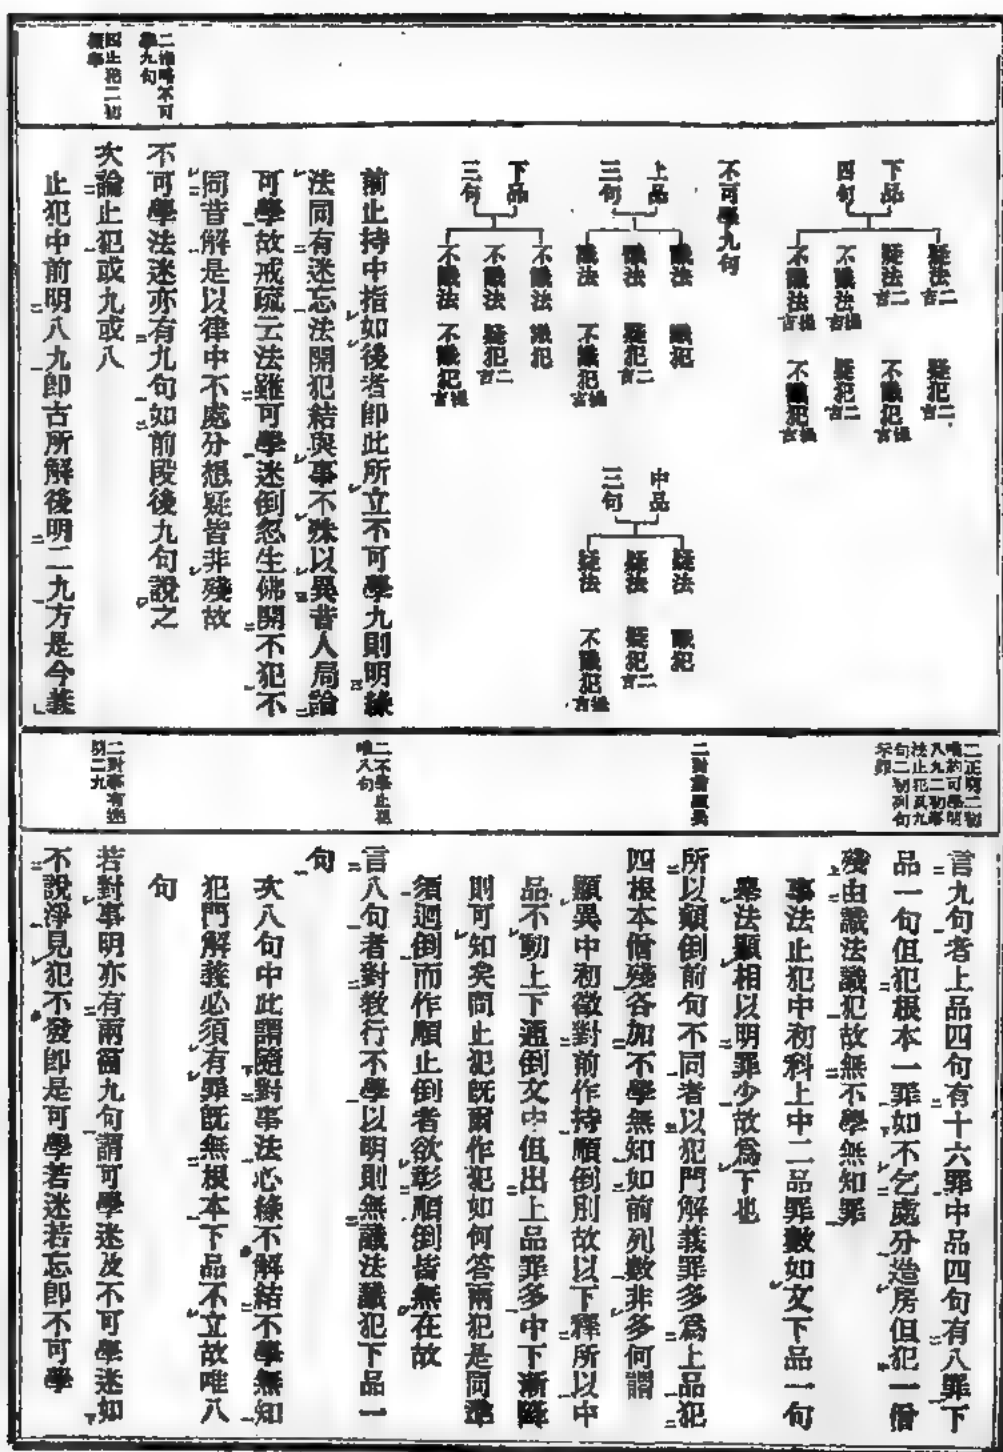 下品
四句
疑法二吉
疑犯二吉
疑法二吉
不識犯提吉
不識法提吉
疑犯二吉
不識法提吉
不識犯提吉
不可學九句
上品
三句
識法
識犯
識法
疑犯二吉
識法
不識犯提吉
中品
三句
疑法
識犯
疑法
疑犯二吉
疑法
不識犯提吉
下品
三句
不識法
識犯
不識法
疑犯二吉
不識法
不識犯提吉
前止持中指如後者即此所立不可學九則明緣
法同有迷忘法開犯結與事不殊以異昔人局論
可學故戒疏云法雖可學迷倒忽生佛開不犯不
同昔解是以律中不處分想疑皆非殘故
二準略不可
學九句
不可學法迷亦有九句如前段後九句說之
四止犯二初
標舉
次論止犯或九或八
止犯中前明八九即古所解後明二九方是今義
二正明二初
唯約可學明
八九二初事
法止犯具九
句二初列句
示罪
言九句者上品四句有十六罪中品四句有八罪下
品一句但犯根本一罪如不乞處分造房但犯一僧
殘由識法識犯故無不學無知罪
事法止犯中初科上中二品罪數如文下品一句
舉法顯相以明罪少故為下也
二對前顯異
所以顛倒前句不同者以犯門解義罪多為上品犯
四根本僧殘各加不學無知如前列數非多何謂
顯異中初徵對前作持順倒別故以下釋所以中
品不動上下通倒文中但出上品罪多中下漸降
則可知矣問止犯既爾作犯如何答兩犯是同準
須迴倒而作順止倒者欲彰順倒皆無在故
二不學止犯
唯八句
言八句者對教行不學以明則無識法識犯下品一
句
次八句中此謂隨對事法心緣不解結不學無知
犯門解義必須有罪既無根本下品不立故唯八
句
二對事有迷
明二九
若對事明亦有兩個九句謂可學迷及不可學迷如
不說淨見犯不發即是可學若迷若忘即不可學